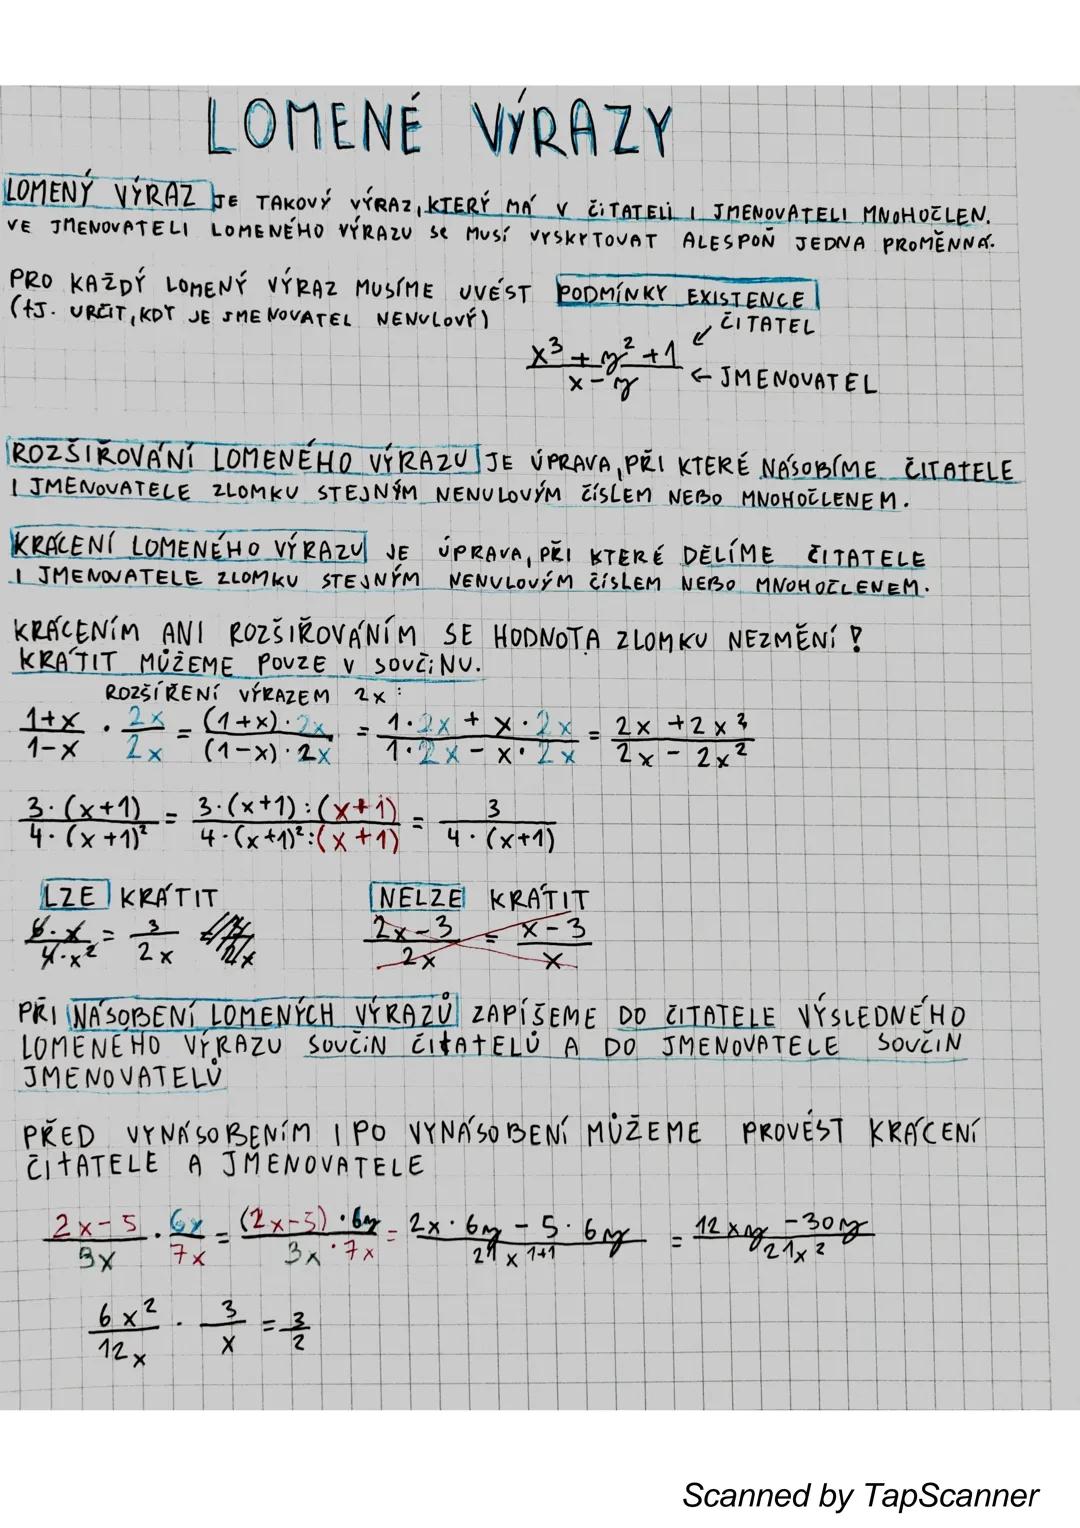 LOMENÉ VÝRAZY
LOMENÝ VÝRAZ JE TAKOVÝ VÝRAZ, KTERÝ MÁ V ČITATELI I JMENOVATELI MNOHOČLEN.
VE JMENOVATELI LOMENÉHO VÝRAZU SE MUSÍ VYSKYTOVAT ALESPOŇ JEDNA PROMĚNNÁ.
PRO KAŽDÝ LOMENÝ VÝRAZ MUSÍME UVÉST PODMÍNKY EXISTENCE
(TJ. URČIT, KDY JE JMENOVATEL NENULOVÝ)
↙ ČITATEL
x³ + y² + 1
x - y ← JMENOVATEL
ROZŠIŘOVÁNÍ LOMENÉHO VÝRAZU JE ÚPRAVA, PŘI KTERÉ NÁSOBÍME ČITATELE
I JMENOVATELE ZLOMKU STEJNÝM NENULOVÝM ČÍSLEM NEBO MNOHOČLENEM.
KRÁCENÍ LOMENÉHO VÝRAZU JE ÚPRAVA, PŘI KTERÉ DĚLÍME ČITATELE
I JMENOVATELE ZLOMKU STEJNÝM NENULOVÝM ČÍSLEM NEBO MNOHOČLENEM.
KRÁCENÍM ANI ROZŠIŘOVÁNÍM SE HODNOTA ZLOMKU NEZMĚNÍ !
KRÁTIT MŮŽEME POUZE V SOUČINU.
ROZŠÍŘENÍ VÝRAZEM 2x :
1+x / 1-x · 2x / 2x = (1+x)·2x / (1-x)·2x = 1·2x + x·2x / 1·2x - x·2x = 2x + 2x² / 2x - 2x²
3·(x+1) / 4·(x+1)² = 3·(x+1):(x+1) / 4·(x+1)²:(x+1) = 3 / 4·(x+1)
LZE KRÁTIT NELZE KRÁTIT
6·x / 4·x² = 3 / 2x 2x-3 / 2x = x-3 / x
PŘI NÁSOBENÍ LOMENÝCH VÝRAZŮ ZAPÍŠEME DO ČITATELE VÝSLEDNÉHO
LOMENÉHO VÝRAZU SOUČIN ČITATELŮ A DO JMENOVATELE SOUČIN
JMENOVATELŮ
PŘED VYNÁSOBENÍM I PO VYNÁSOBENÍ MŮŽEME PROVÉST KRÁCENÍ
ČITATELE A JMENOVATELE
2x-5 / 3x · 6y / 7x = (2x-5)·6y / 3x·7x = 2x·6y - 5·6y / 21x¹⁺¹ = 12xy - 30y / 21x²
6x² / 12x · 3 / x = 3 / 2
Scanned by TapScanner